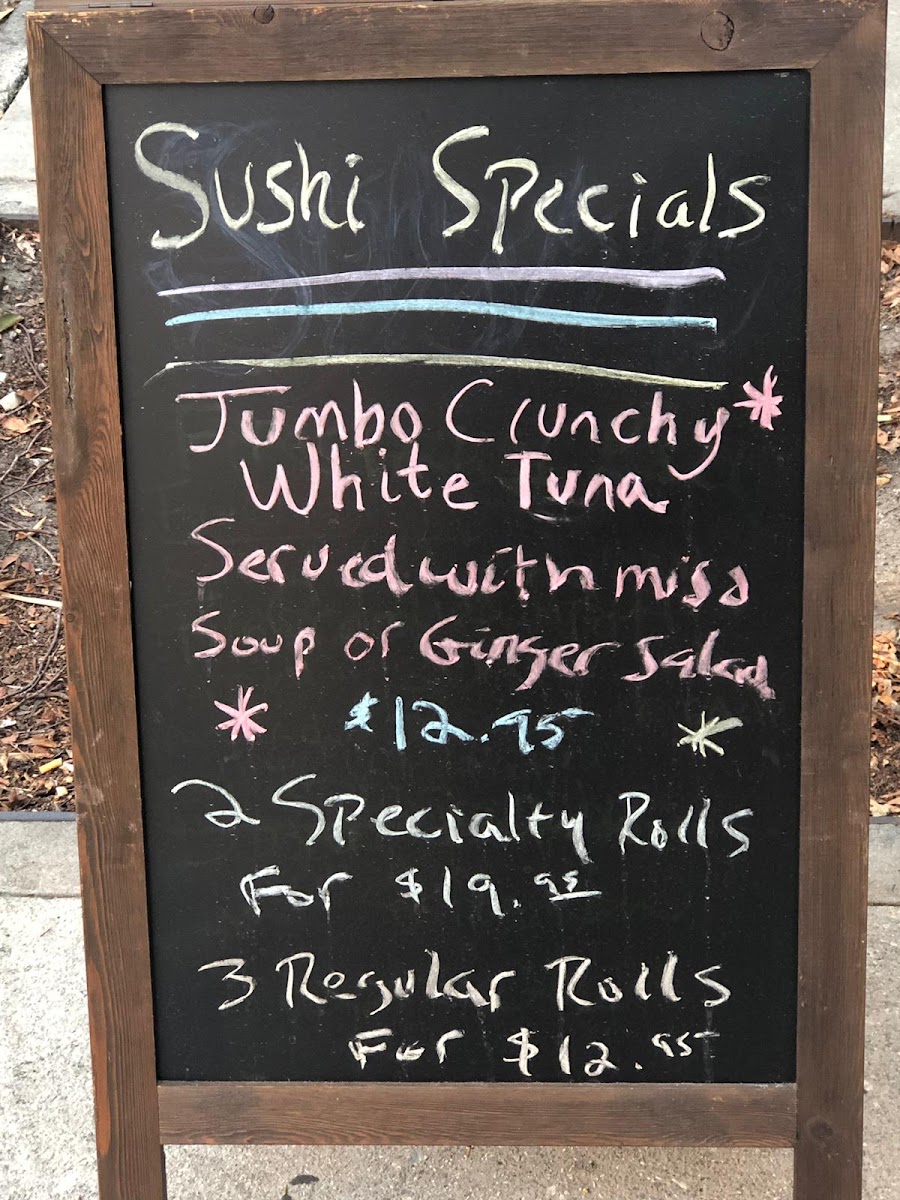 Sushi Specials
Jumbo Crunchy*
White Tuna
Served with miso
Soup or Ginger Salad
* $12.95 *
2 Specialty Rolls
For $19.95
3 Regular Rolls
For $12.95